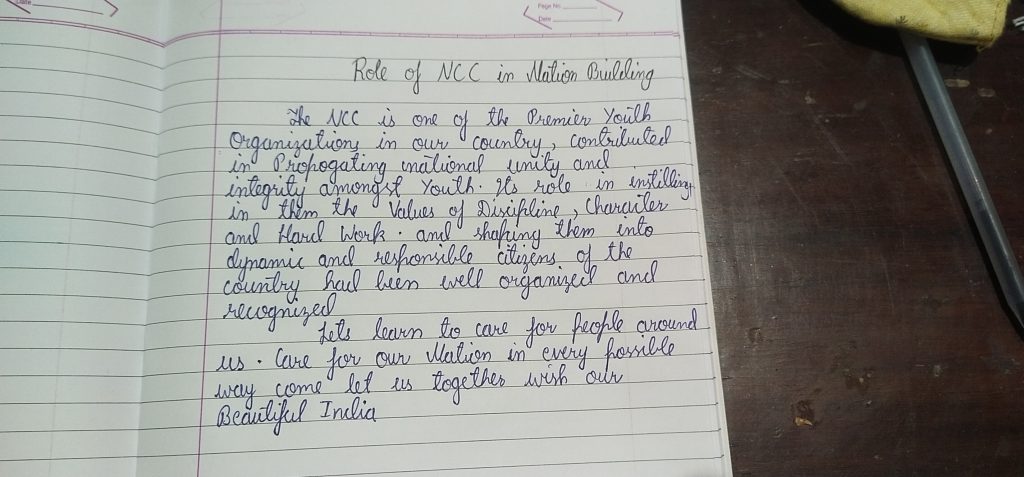 Date
Page No.
Date
Role of NCC in Nation Building
The NCC is one of the Premier Youth
Organizations in our country, contributed
in Propogating national unity and
integrity amongst Youth. Its role in instilling
in them the Values of Discipline, Character
and Hard Work. and shaping them into
dynamic and responsible citizens of the
country had been well organized and
recognized
Lets learn to care for people around
us. Care for our Nation in every possible
way come let us together wish our
Beautiful India